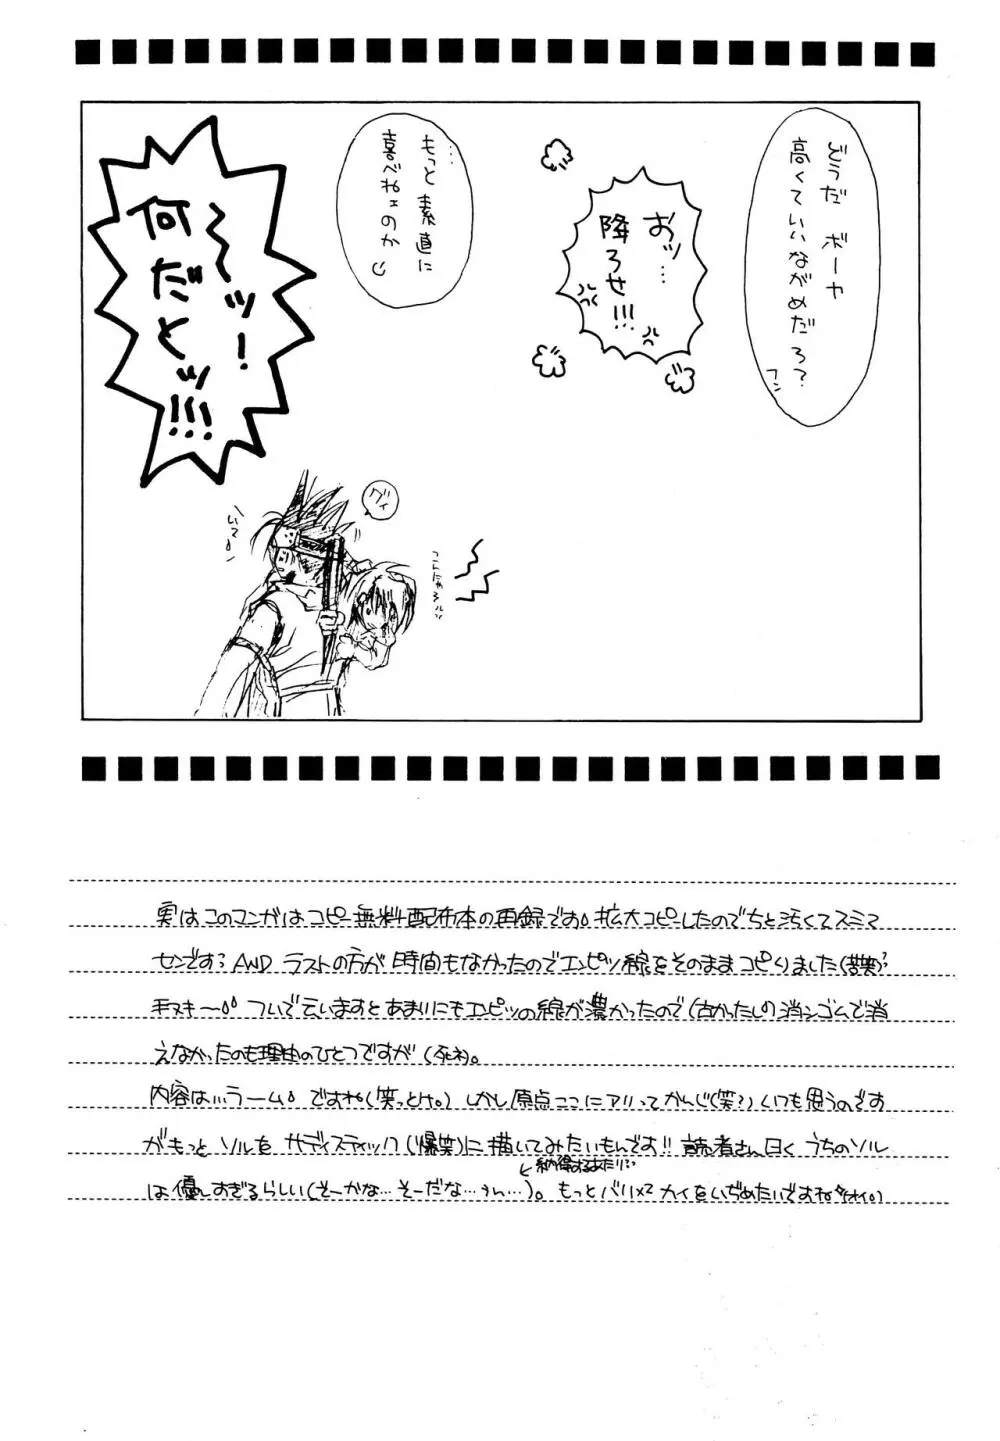 どうだ ボーヤ
高くていいながめだろ?
フン
おッ…
降ろせ!!!
…もっと 素直に
喜べねェのか
~~ッ!
何だとッ!!!
グィ
いて
こんにゃろ
実はこのマンガはコピー無料配布本の再録です。拡大コピーしたのでちと汚くてスミマ
センです? AND ラストの方が時間もなかったのでエンピツ線をそのままコピりました(苦笑)?
手ヌキ〜 ついで云いますとあまりにもエンピツの線が濃かったので(古かったし)消シゴムで消
えなかったのも理由のひとつですが(死ネ)。
内容は…うーム。ですね(笑っとけ。) しかし原点ここにアリってかんじ(笑?) いつも思うのです
がもっとソルを サディスティック(爆笑)に描いてみたいもんです!! 読者さん曰く うちのソル
納得するあたり…
は優しすぎるらしい(そーかな…そーだな…うん…)。もっとバリバリ カイをいぢめたいですね(オイ。)